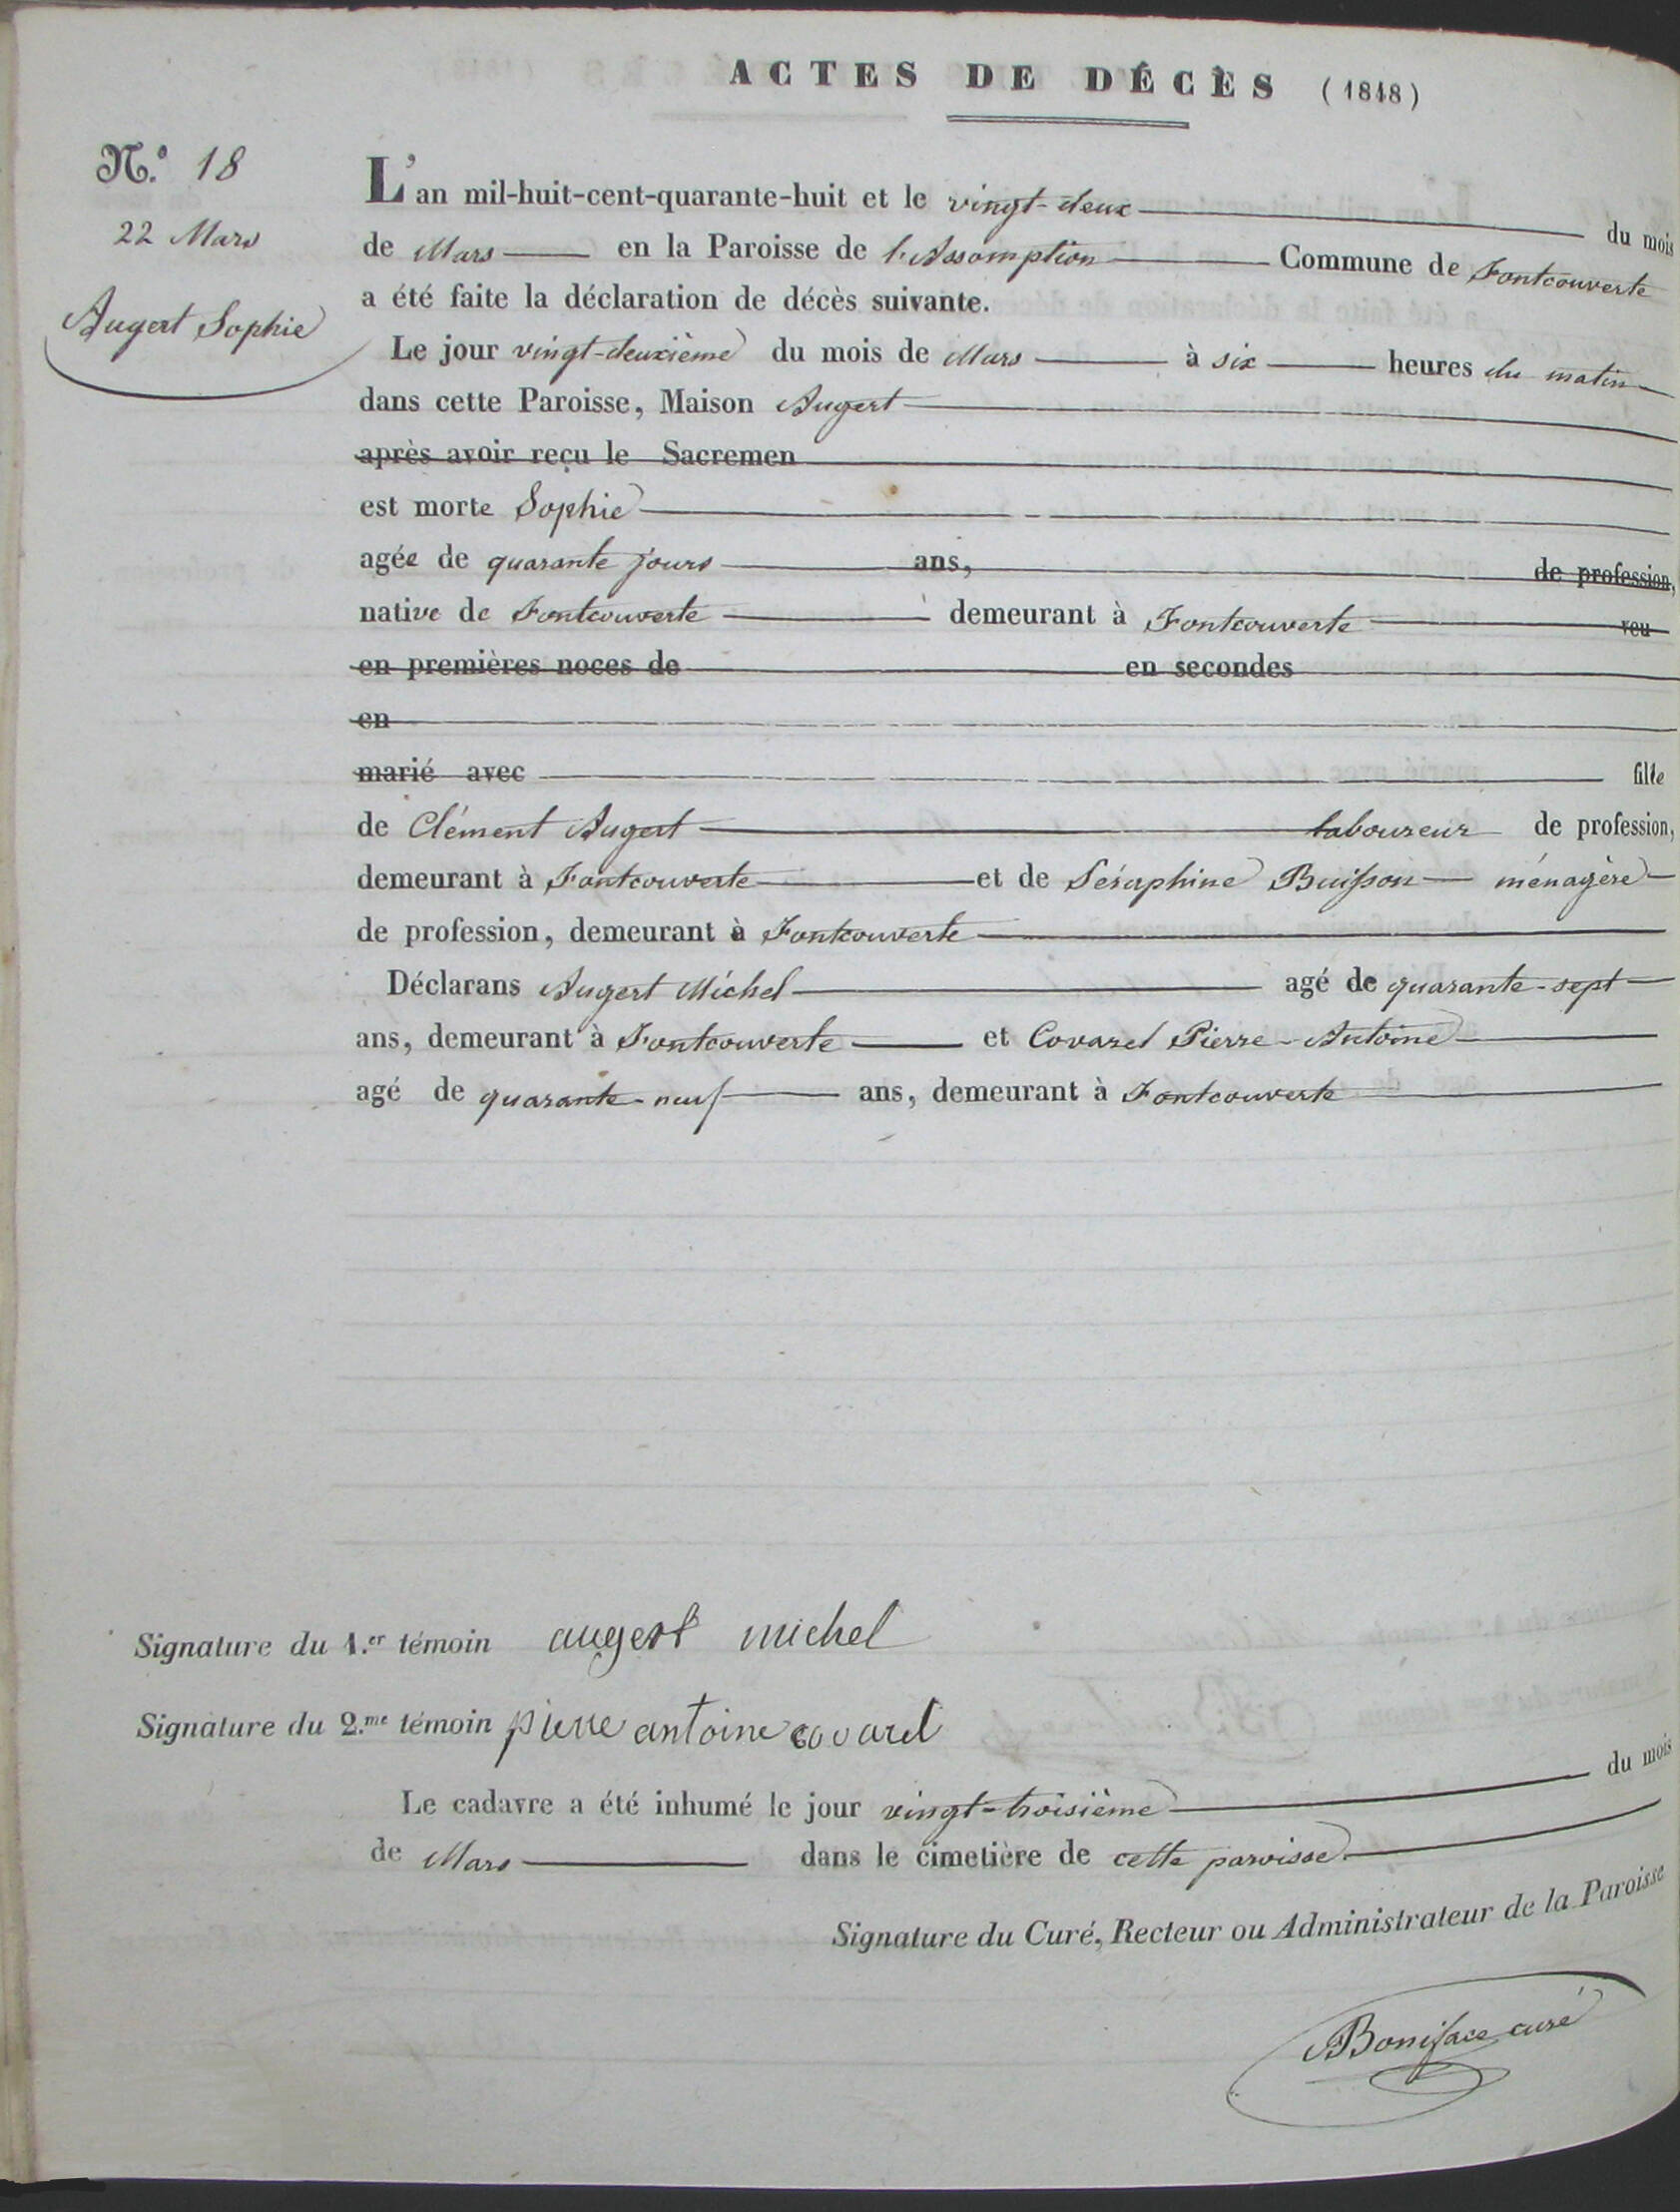 ACTES DE DÉCÈS (1848)
N.º 18
22 Mars
Augert Sophie
L'an mil-huit-cent-quarante-huit et le vingt-deux du mois
de Mars en la Paroisse de l'Assomption Commune de Fontcouverte
a été faite la déclaration de décès suivante.
Le jour vingt-deuxième du mois de Mars à six heures du matin
dans cette Paroisse, Maison Augert
après avoir reçu le Sacremen
est morte Sophie
agée de quarante jours ans, de profession,
native de Fontcouverte demeurant à Fontcouverte veu
en premières noces de en secondes
en
marié avec fille
de Clément Augert laboureur de profession,
demeurant à Fontcouverte et de Séraphine Buisson ménagère
de profession, demeurant à Fontcouverte
Déclarans Augert Michel agé de quarante-sept
ans, demeurant à Fontcouverte et Covarel Pierre-Antoine
agé de quarante-neuf ans, demeurant à Fontcouverte
Signature du 1.er témoin augert michel
Signature du 2.me témoin pierre antoine covarel
Le cadavre a été inhumé le jour vingt-troisième du mois
de Mars dans le cimetière de cette paroisse
Signature du Curé, Recteur ou Administrateur de la Paroisse
Boniface curé